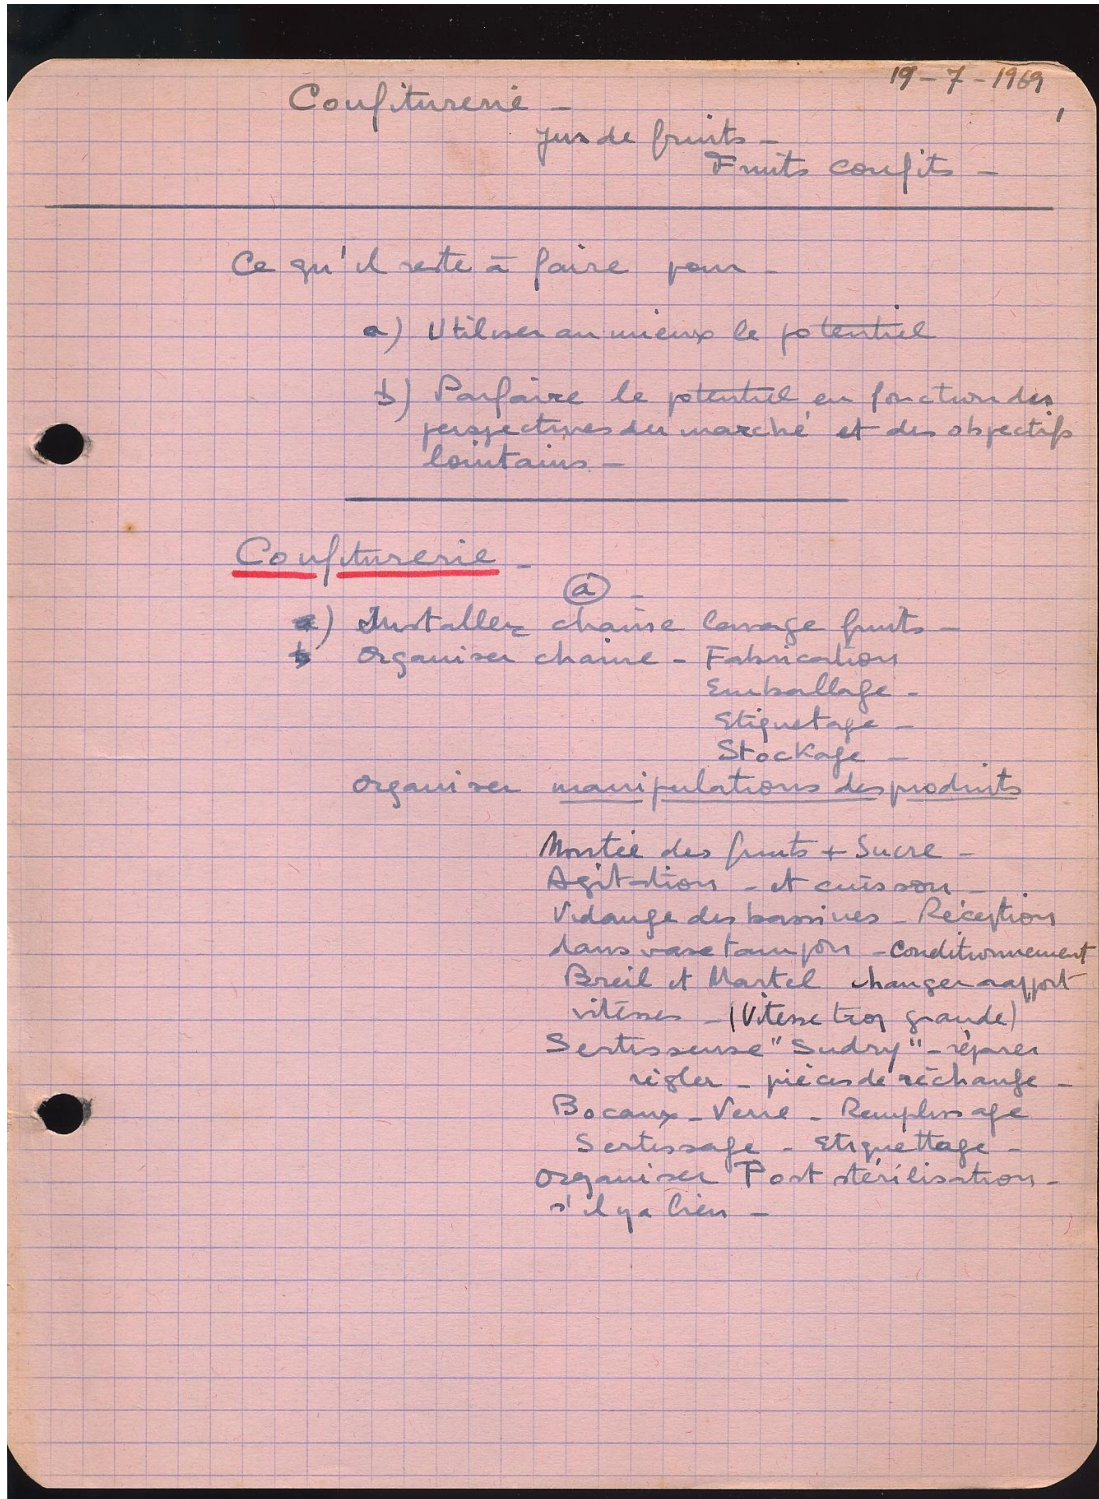 19-7-1969
1
Confiturerie -
Jus de fruits -
Fruits confits -
Ce qu'il reste à faire pour -
a) Utiliser au mieux le potentiel
b) Parfaire le potentiel en fonction des
perspectives du marché et des objectifs
lointains -
Confiturerie -
a -
a) Installer chaine lavage fruits -
b Organiser chaine - Fabrication
Emballage -
Etiquetage -
Stockage -
Organiser manipulations des produits
Montée des fruits + Sucre -
Agitation - et cuisson -
Vidange des bassines - Réception
dans vase tampon - Conditionnement
Breil et Martel changer rapport
vitesses - (Vitesse trop grande)
Sertisseuse "Sudry" - réparer
régler - pièces de réchange -
Bocaux - Verre - Remplissage
Sertissage - Etiquettage -
Organiser Post stérilisation -
s'il y a lieu -